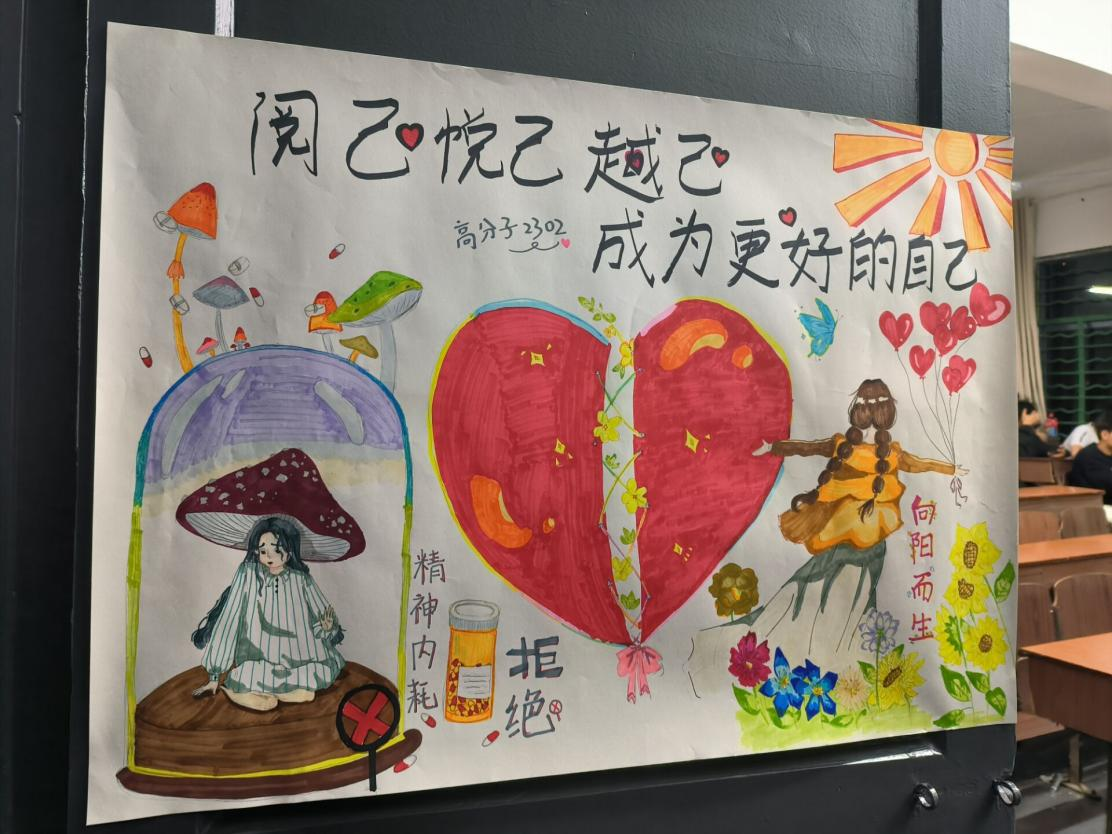 阅己悦己越己
高分子2302
成为更好的自己
精神内耗
拒绝
向阳而生